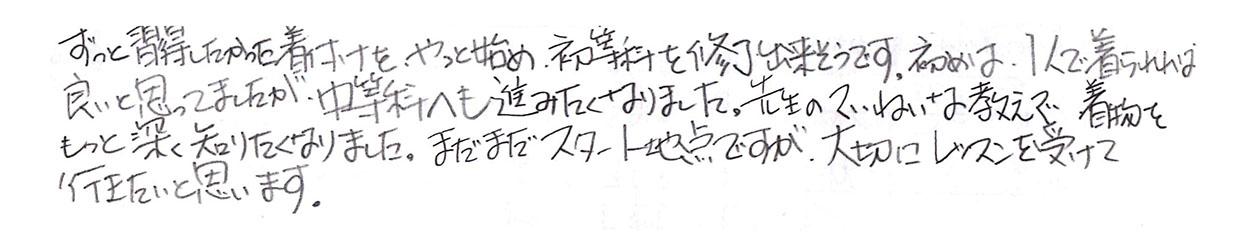 ずっと習得したかった着付けを、やっと始め、初等科を修了出来そうです。初めは、1人で着られれば
良いと思ってましたが、中等科へも進みたくなりました。先生のていねいな教えで、着物を
もっと深く知りたくなりました。まだまだスタート地点ですが、大切にレッスンを受けて
行きたいと思います。